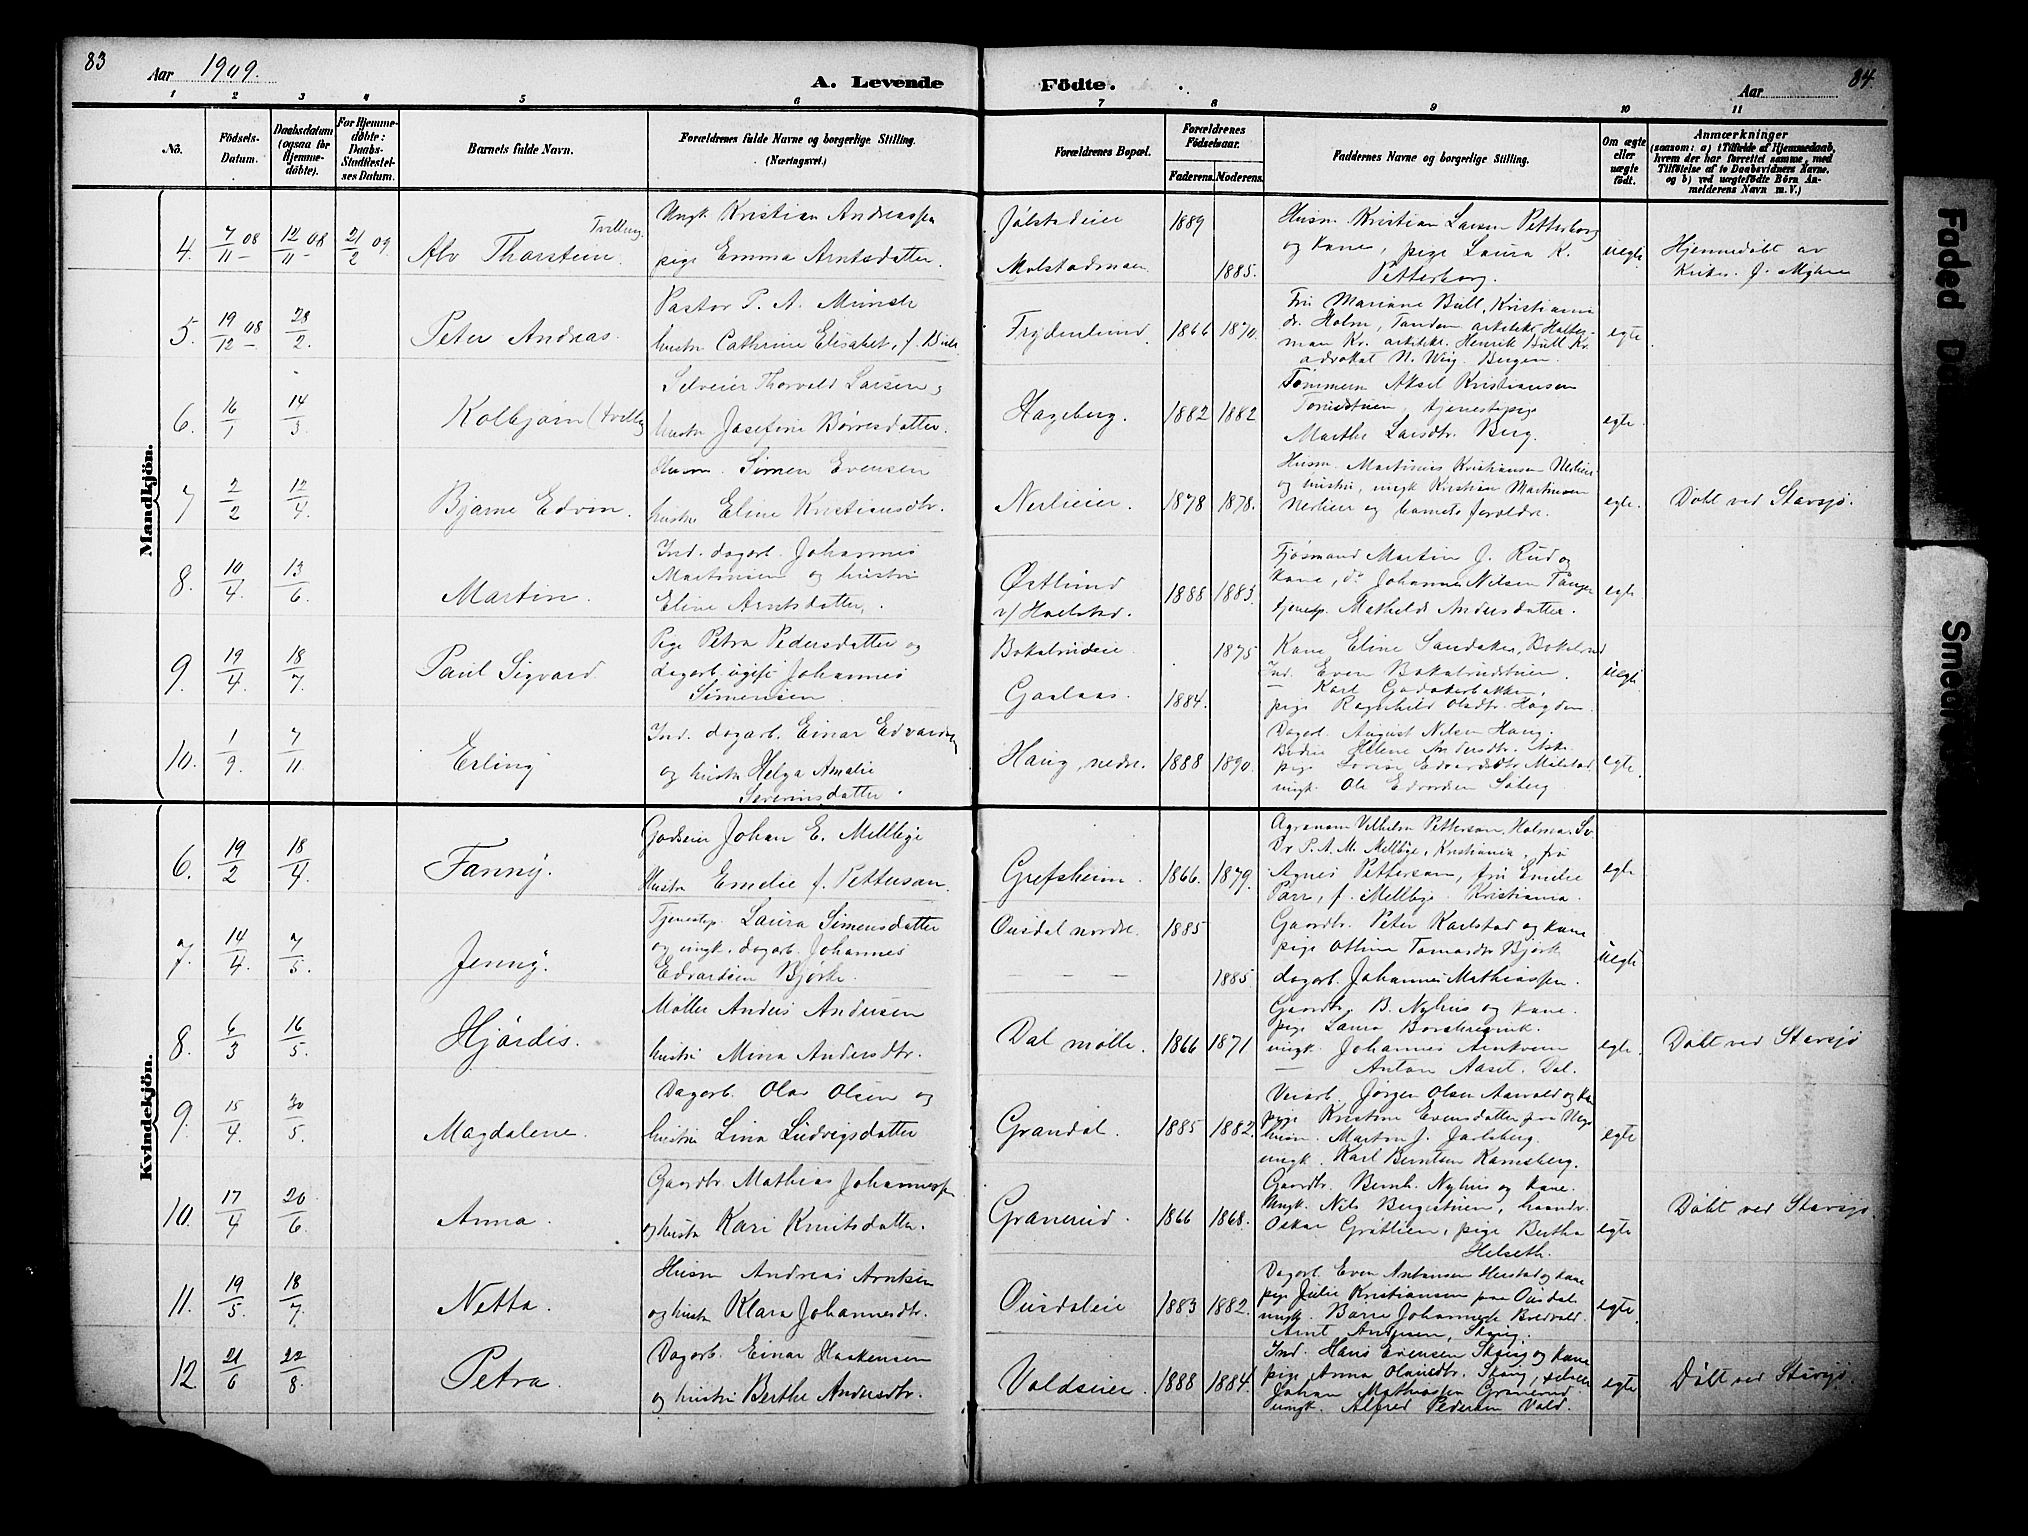 83
Aar 1909.
A. Levende
Födte.
Aar
84
1 2 3 4 5 6 7 8 9 10 11
No.
Födsels-
Datum.
Daabsdatum
(ogsaa for
Hjemme-
döbte).
For Hjemme-
döbte:
Daabs-
Stadfæstel-
ses Datum.
Barnets fulde Navn.
Forældrenes fulde Navne og borgerlige Stilling.
(Næringsvei.)
Forældrenes Bopæl.
Forældrenes
Födselsaar.
Faderens. Moderens.
Faddernes Navne og borgerlige Stilling.
Om ægte
eller
uægte
födt.
Anmærkninger
(saasom: a) i Tilfælde af Hjemmedaab,
hvem der har forrettet samme, med
Tilföielse af to Daabsvidners Navne,
og b) ved uægtefödte Börn An-
melderens Navn m. V.)
Mandkjön.
4. 7/11 08 12/11 08 21/2 09 Alv Thorstein. Tvilling.
Ungk Kristian Andreassen
pige Emma Arntsdatter.
Jølstadeier 1889
Molstadmoen 1885.
Husm. Kristian Larsen Petterborg
og Kane, pige Laura K.
Petterborg.
uegte.
Hjemmedøbt av
Kirkes. J. Myhre
5. 19/12 08 28/2 Peter Andreas.
Pastor P. A. Münch
hustru Cathrine Elisabet, f. Bull.
Frydenlund. 1866 1870.
Fru Mariane Bull, Kristiania
dr. Holm, Tandem arkitekt Holter-
man Kr. arkitekt. Henrik Bull Kr.
advokat N. Bergen.
egte.
6. 16/1 14/3 Kolbjørn (tvilling
Selveier Thorvald Larsen,
hustru Josefine Børresdatter.
Hageberg. 1882 1882
Tømmerm Aksel Kristiansen
tjenestepige
Marthe Larsdtr. Berg.
egte.
7 2/2 12/4 Bjarne Edvin.
Husm. Simen Evensen
hustru Eline Kristiansdtr.
Nerlieier. 1878 1878.
Husm. Martinius Kristiansen Nerlieie-
og hustru, ungk Kristian Martinsen
Nerlieier og barnets forældre.
egte.
Døbt ved Stavsjø.
8. 10/4 13/6 Martin.
Ind. dagarb. Johannes
Martinsen og hustru
Eline Arntsdatter.
Østlund
v/ Hoelstad. 1888 1883.
Fjøsmand Martin J. Rud og
Kane, do Johannes Nilsen Tangen
tjenestp. Mathilde Andersdatter.
egte
9. 19/4 18/7 Paul Sigvard
Pige Petra Pedersdatter og
dagarb. ugift Johannes
Simensen
Bokalrudeie 1875
Gaalaas. 1884.
Kane Eline Sandaker, Bokalrud
Ind. Even Bokalrudstuen.
— Karl Godakerbakken,
pige Ragnhild Olsdtr. Hagden
uegte
10. 1/9 7/11 Erling
Ind. dagarb. Einar Edvardsen
og hustru Helga Amalie
Severinsdatter.
Haug, nedre. 1888 1890.
Dagarb. August Nilsen Haug.
Helene Andersdtr. Ask.
pige Lovise Edvardsdtr. Molstad,
ungk. Ole Edvardsen Søberg
egte.
Kvindekjön.
6. 19/2 18/4 Fanny.
Godseier Johan E. Mellbye
Hustru Emelie f. Petterson.
Grefsheim. 1866. 1879.
Agronom Vilhelm Petterson, Holma, Sv.
Dr P. A. M. Mellbye, Kristiania. fru
Agnes Petterson, fru Emelie
Parr, f. Mellbye Kristiania.
egte
7. 14/4 7/5. Jenny.
Tjenestep. Laura Simensdatter
og ungk. dagarb. Johannes
Edvardsen Bjørke.
Ousdal nordre. 1885
— — — 1885.
Gaardbr. Peter Karlstad og Kane
pige Othine Tomasdtr Bjørk
dagarb. Johannes Mathiassen.
uegte
8. 6/3 16/5. Hjørdis.
Møller Anders Andersen
hustru Mina Andersdtr.
Dal mølle. 1866 1871
Gaardbr. B. Nyhus og Kane.
pige Laura
ungk. Johannes Arnkvern
— Anton Aaset. Dal.
egte.
Døbt ved Stavsjø
9. 15/4 30/5. Magdalene.
Dagarb. Olav Olsen og
hustru Lina Ludvigsdatter
Grandal. 1885 1882.
Veiarb. Jørgen Olsen Aarvold og Kane
pige Kristine Evensdatter fra
husm. Marton J. Jarlsberg.
ungk. Karl Berntsen Ramsberg.
egte
10. 17/4 20/6. Anna.
Gaardbr Mathias Johannessen
og hustru Kari Knutsdatter.
Granerud. 1866 1868.
Gaardbr. Bernh. Nyhus og Kane.
Ungk. Nils Bergestuen, haandv.
Oskar Grøtlien, pige Bertha
Helseth.
egte
Døbt ved Stavsjø
11. 19/5 18/7. Netta.
Husm Andreas Arntsen
og hustru Klara Johannesdtr.
Ousdaleie 1883 1882.
Dagarb. Even Antonsen Herstad og Kane
pige Julie Kristiansen paa Ousdal
ungk. Børre Johannesen Boldvold.
Arnt Andersen, Skaug.
egte
12. 21/6 22/8. Petra.
Dagarb. Einar Haakensen
og hustru Berthe Andersdtr.
Voldseier. 1888 1884.
Ind. Hans Evensen Skaug og Kane
pige Anna Olausdtr. Skaug, selveier
Johan Mathiassen Granerud,
ungk. Alfred Pedersen Vold.
egte
Døbt ved Stavsjø
Faded D
Smea